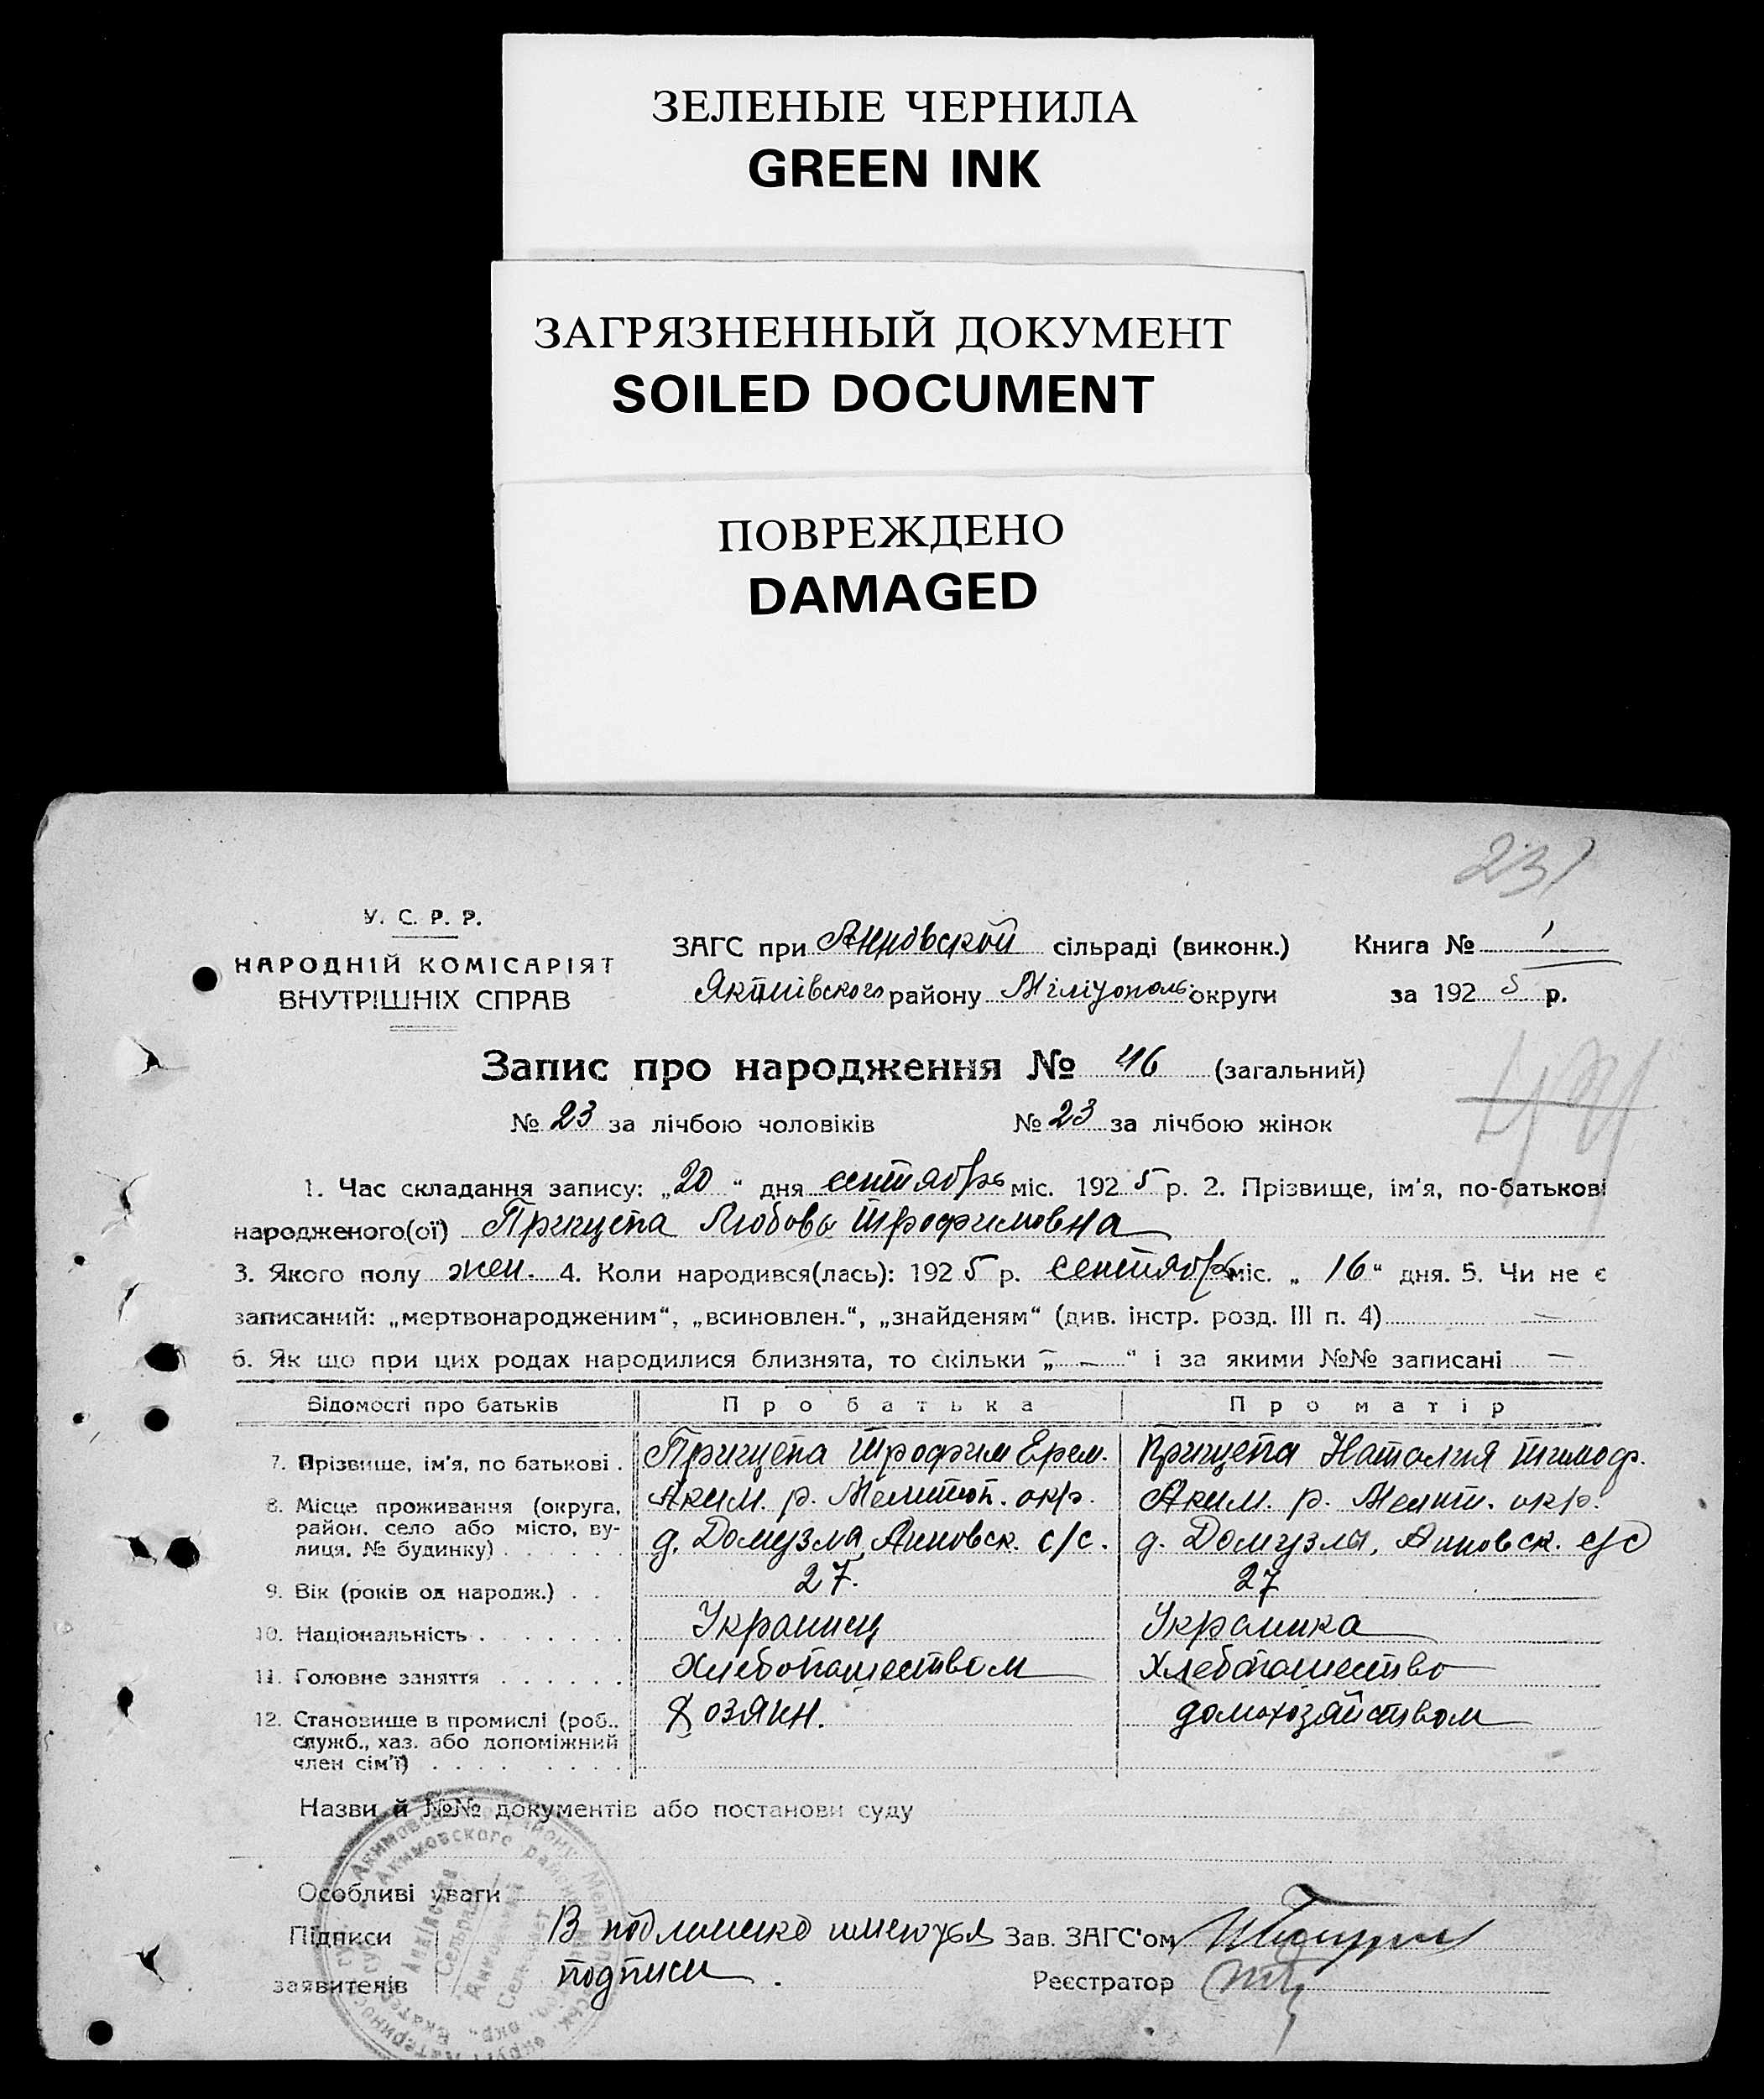 ЗЕЛЕНЫЕ ЧЕРНИЛА
GREEN INK
ЗАГРЯЗНЕННЫЙ ДОКУМЕНТ
SOILED DOCUMENT
ПОВРЕЖДЕНО
DAMAGED
231
У. С. Р. Р.
НАРОДНІЙ КОМІСАРІЯТ
ВНУТРІШНІХ СПРАВ
ЗАГС при Анновской сільраді (виконк.) Книга № 1
району округи за 1925 р.
Запис про народження № 46 (загальний)
№ 23 за лічбою чоловіків № 23 за лічбою жінок
1. Час складання запису: „20“ дня сентябрь міс. 1925 р. 2. Прізвище, ім'я, по-батькові
народженого(ої) Прищепа Любовь Трофимовна
3. Якого полу жен. 4. Коли народився(лась): 1925 р. сентябрь міс. „16“ дня. 5. Чи не є
записаний: „мертвонародженим“, „всиновлен.“, „знайденям“ (див. інстр. розд. III п. 4) —
6. Як що при цих родах народилися близнята, то скільки „—“ і за якими №№ записані —
Відомості про батьків Про батька Про матір
7. Прізвище, ім'я, по батькові . Прищепа Трофим Ерем. Прищепа Наталия Тимоф.
8. Місце проживання (округа, Аким. р. Мелитоп. окр. Аким. р. Мелит. окр.
район, село або місто, ву- д. Домузла, Анновск. с/с. д. Домузлы, Анновск. с/с
лиця, № будинку) . . . . . .
9. Вік (років од народж.) . . 27. 27
10. Національність . . . . . . . Украинец Украинка
11. Головне заняття . . . . . . Хлебопашеством Хлебопашество
12. Становище в промислі (роб., Хозяин. домохозяйством
служб., хаз. або допоміжний
член сім'ї) . . . . . . . .
Назви й №№ документів або постанови суду
Особливі уваги
Підписи В подлинике имеюутся Зав. ЗАГС'ом
заявителів подписи. Реєстратор
Акимовского
Сельрада